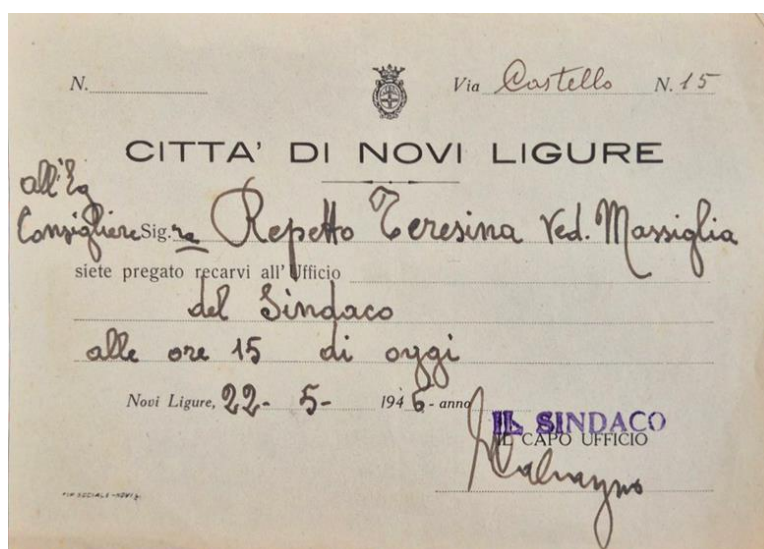 N. Via Castello N. 15
CITTA' DI NOVI LIGURE
all'Eg
Consigliere Sig.ra Repetto Teresina Ved. Massiglia
siete pregato recarvi all'Ufficio
del Sindaco
alle ore 15 di oggi
Novi Ligure, 22- 5- 1946 - anno
IL SINDACO
IL CAPO UFFICIO